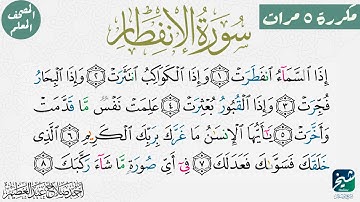 مكررة ٥ مرات
المصحف المعلم
سورة الانفطار
إِذَا السَّمَاءُ انفَطَرَتْ ١ وَإِذَا الْكَوَاكِبُ انتَثَرَتْ ٢ وَإِذَا الْبِحَارُ
فُجِّرَتْ ٣ وَإِذَا الْقُبُورُ بُعْثِرَتْ ٤ عَلِمَتْ نَفْسٌ مَّا قَدَّمَتْ
وَأَخَّرَتْ ٥ يَٰأَيُّهَا الْإِنسَٰنُ مَا غَرَّكَ بِرَبِّكَ الْكَرِيمِ ٦ الَّذِي
خَلَقَكَ فَسَوَّىٰكَ فَعَدَلَكَ ٧ فِي أَيِّ صُورَةٍ مَّا شَاءَ رَكَّبَكَ ٨
شيخ